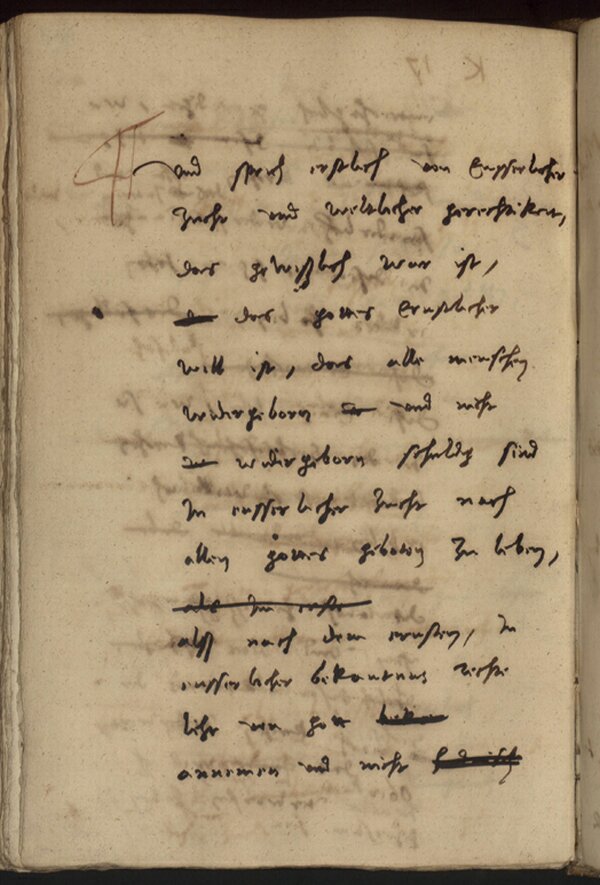 K 17
Und sprich erstlich von Eusserlicher
Zucht und weltlicher gerechtikeit,
das gewißlich war ist,
das gottes Ernstlicher
will ist, das alle menschen
widergeborn und nicht
widergeborn schuldig sind
In eusserlicher Zucht nach
allen gottes geboten zu leben,
als Im ersten
alß nach dem ersten, In
eusserlicher bekantnus rechte
lehr von gott
annemen und nicht